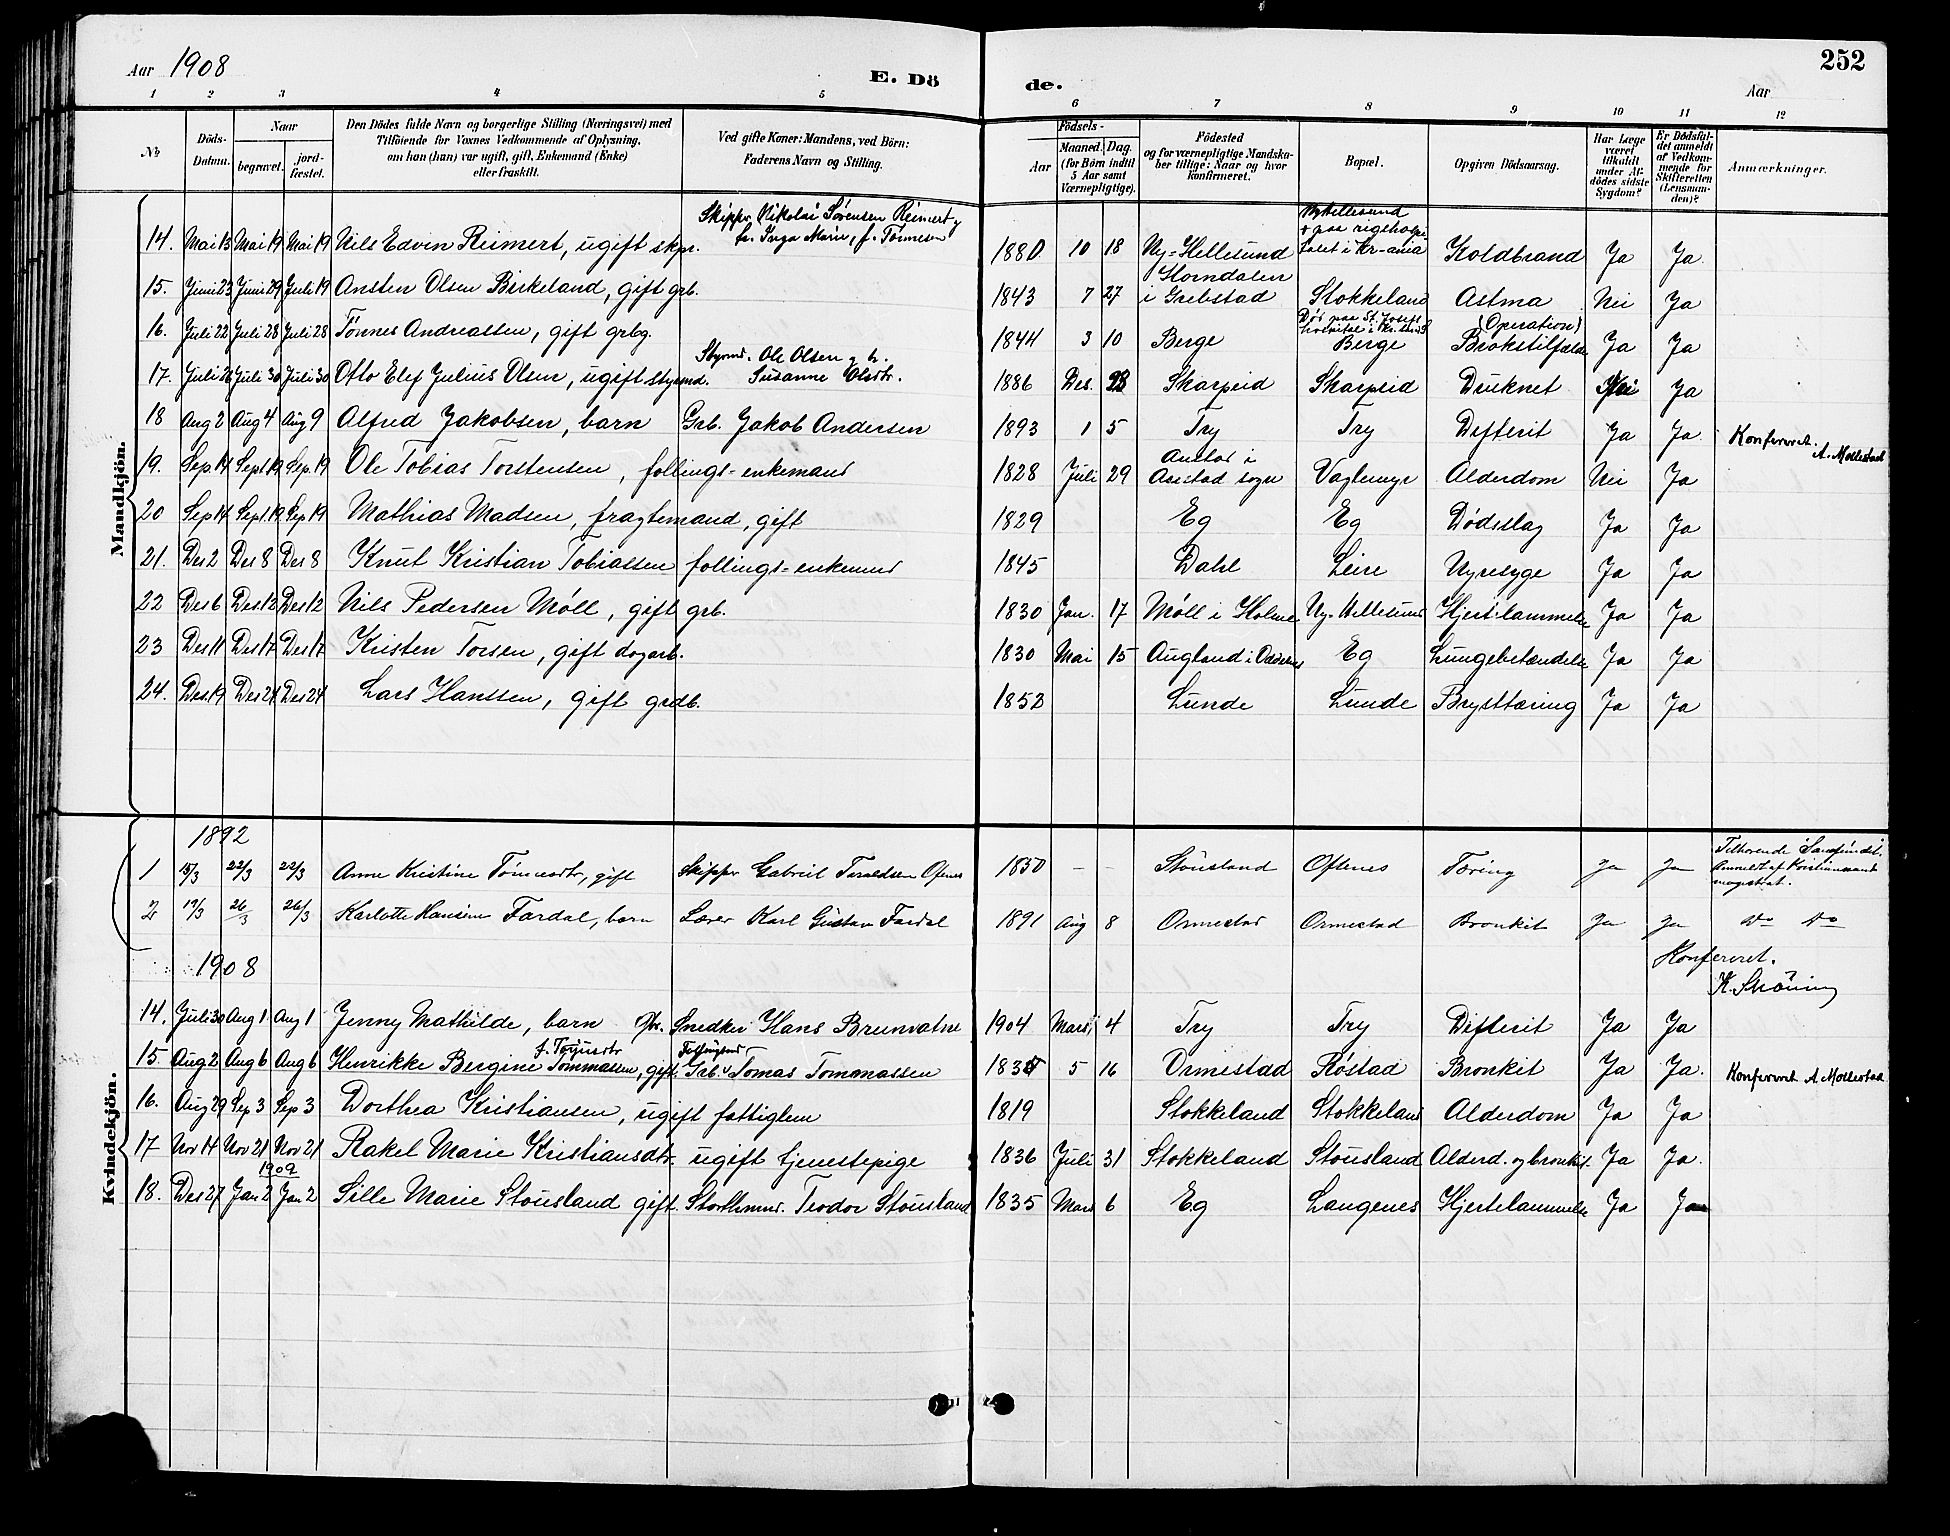 Aar 1908
E. Dö
de.
Aar
252
1 2 3 4 5 6 7 8 9 10 11 12
No
Döds-Datum.
Naar
begravet.
jord-fæstet.
Den Dödes fulde Navn og borgerlige Stilling (Næringsvei) med
Tilföiende for Voxnes Vedkommende af Oplysning,
om han (hun) var ugift, gift, Enkemand (Enke)
eller fraskilt.
Ved gifte Koner: Mandens, ved Börn:
Faderens Navn og Stilling.
Födsels-
Aar
Maaned. Dag.
(for Börn indtil
5 Aar samt
Værnepligtige).
Födested
og for værnepligtige Mandska-
ber tillige: Naar og hvor
konfirmeret.
Bopæl.
Opgiven Dödsaarsag.
Har Læge
været
tilkaldt
under Af-
dödes sidste
Sygdom?
Er Dödsfal-
det anmeldt
af Vedkom-
mende for
Skifteretten
(Lensman-
den)?
Anmærkninger.
Mandkjön.
Skippr. Nikolai Sørensen Reimert og
hr. Inga Marie, f. Tønnesen
Ny Hellesund
† paa rigshospi
talet i Kr-ania
14. Mai 13 Mai 19 Mai 19 Nils Edvin Reimert, ugift skpr. 1880 10 18 Ny-Hellesund Koldbrand Ja Ja
Storndalen
15. Juni 23 Juni 29 Juli 19 Ansten Olsen Birkeland, gift grb. 1843 7 27 i Grebstad Stokkeland Astma Nei Ja
Død paa St. Josefs
hospital i Kr.sand
(Operation)
16. Juli 22 Juli 28 Juli 28 Tönnes Andreassen, gift grbg. 1844 3 10 Berge Berge Brokstilfælde Ja Ja
Styrmd. Ole Olsen og h.
17. Juli 26 Juli 30 Juli 30 Otto Elef Julius Olsen, ugift styrmd. Susanne Olsdtr. 1886 Des. 28 Skarpeid Skarpeid Druknet Nei Ja
18 Aug 2 Aug 4 Aug 9 Alfred Jakobsen, barn Grb. Jakob Andersen 1893 1 5 Try Try Difterit Ja Ja Konfereret. A. Mollestad
19. Sep 14 Sept 19 Sep. 19 Ole Tobias Torstensen, follings-enkemand 1828 Juli 29 sogn Vaglemyr Alderdom Nei Ja
20 Sep 14 Sept. 19 Sep 19 Mathias Madsen, fragtemand, gift 1829 Eg Eg Dødsslag Ja Ja
21. Des 2 Des 8 Des 8 Knut Kristian Tobiassen follings-enkemnd 1845 Dahl Leire Nyresyge Ja Ja
22 Des 6 Des. 12 Des 12 Nils Pedersen Møll, gift grb. 1830 Jan. 17 Møll i Holme Ny-Hellesund Hjertelammelse Ja Ja
23 Des 11 Des 17 Des 17 Kristen Torsen, gift dagarb. 1830 Mai 15 Augland i Oddernes Eg Lungebetændelse Ja Ja
24. Des. 19 Des 24 Des 24 Lars Hanssen, gift grdb. 1852 Lunde Lunde Brysttæring Ja Ja
1892
1 15/3 22/3 22/3 Anne Kristine Tönnesdtr, gift Skippr Gabriel Taraldsen Ofenes 1850 - - Stousland Oftenes Tæring Ja Ja Tilhørende Samfundet.
Anmeldt af Kristianssands
magistrat.
2 19/3 26/3 26/3 Karlotte Hansine Fardal, barn Lærer Karl Gustav Fardal 1891 Aug 8 Ormestad Ormestad Bronkit Ja Ja Do Do
Konfereret.
K. Skröning
1908
Kvindekjön.
14. Juli 30 Aug 1 Aug 1 Jenny Mathilde, barn Gbr. Snedker Hans Brunvatne 1904 Mars 4 Try Try Difterit Ja Ja
15. Aug 2 Aug 6 Aug 6 Henrikke Bergine Tommassen, gift. Grb. Tomas Tommassen 5 16 Ormestad Røstad Bronkit Ja Ja. Konfereret A Mollestad
16. Aug 29 Sep 3 Sep 3 Dorthea Kristiansen, ugift fattiglem 1819 Stokkeland Stokkeland Alderdom Ja Ja
17 Nov 14 Nov 21 Nov 21 Rakel Marie Kristiansdtr. ugift tjenestepige 1836 Juli 31 Stokkeland Stousland Alderd. og bronkit. Ja Ja.
1909
18. Des 27 Jan 2 Jan 2 Sille Marie Stousland gift. Storthmnd. Teodor Stousland 1835 Mars 6 Eg Langenes Hjertelammelse Ja Ja